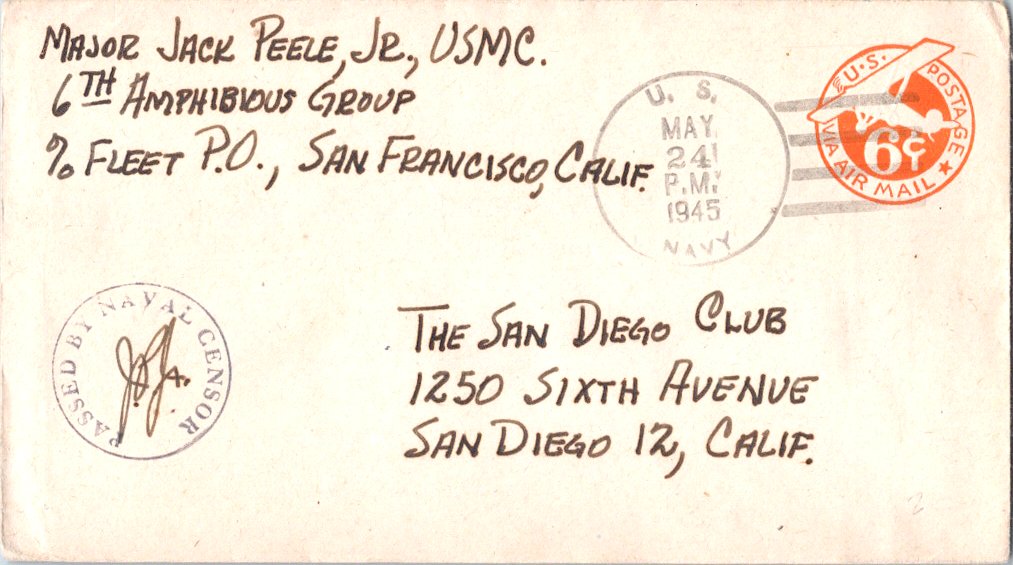 MAJOR JACK PEELE, JR., USMC.
6TH AMPHIBIOUS GROUP
% FLEET P.O., SAN FRANCISCO, CALIF.
U. S.
MAY
24
P.M.
1945
NAVY
U.S. POSTAGE
6¢
VIA AIR MAIL
PASSED BY NAVAL CENSOR
THE SAN DIEGO CLUB
1250 SIXTH AVENUE
SAN DIEGO 12, CALIF.